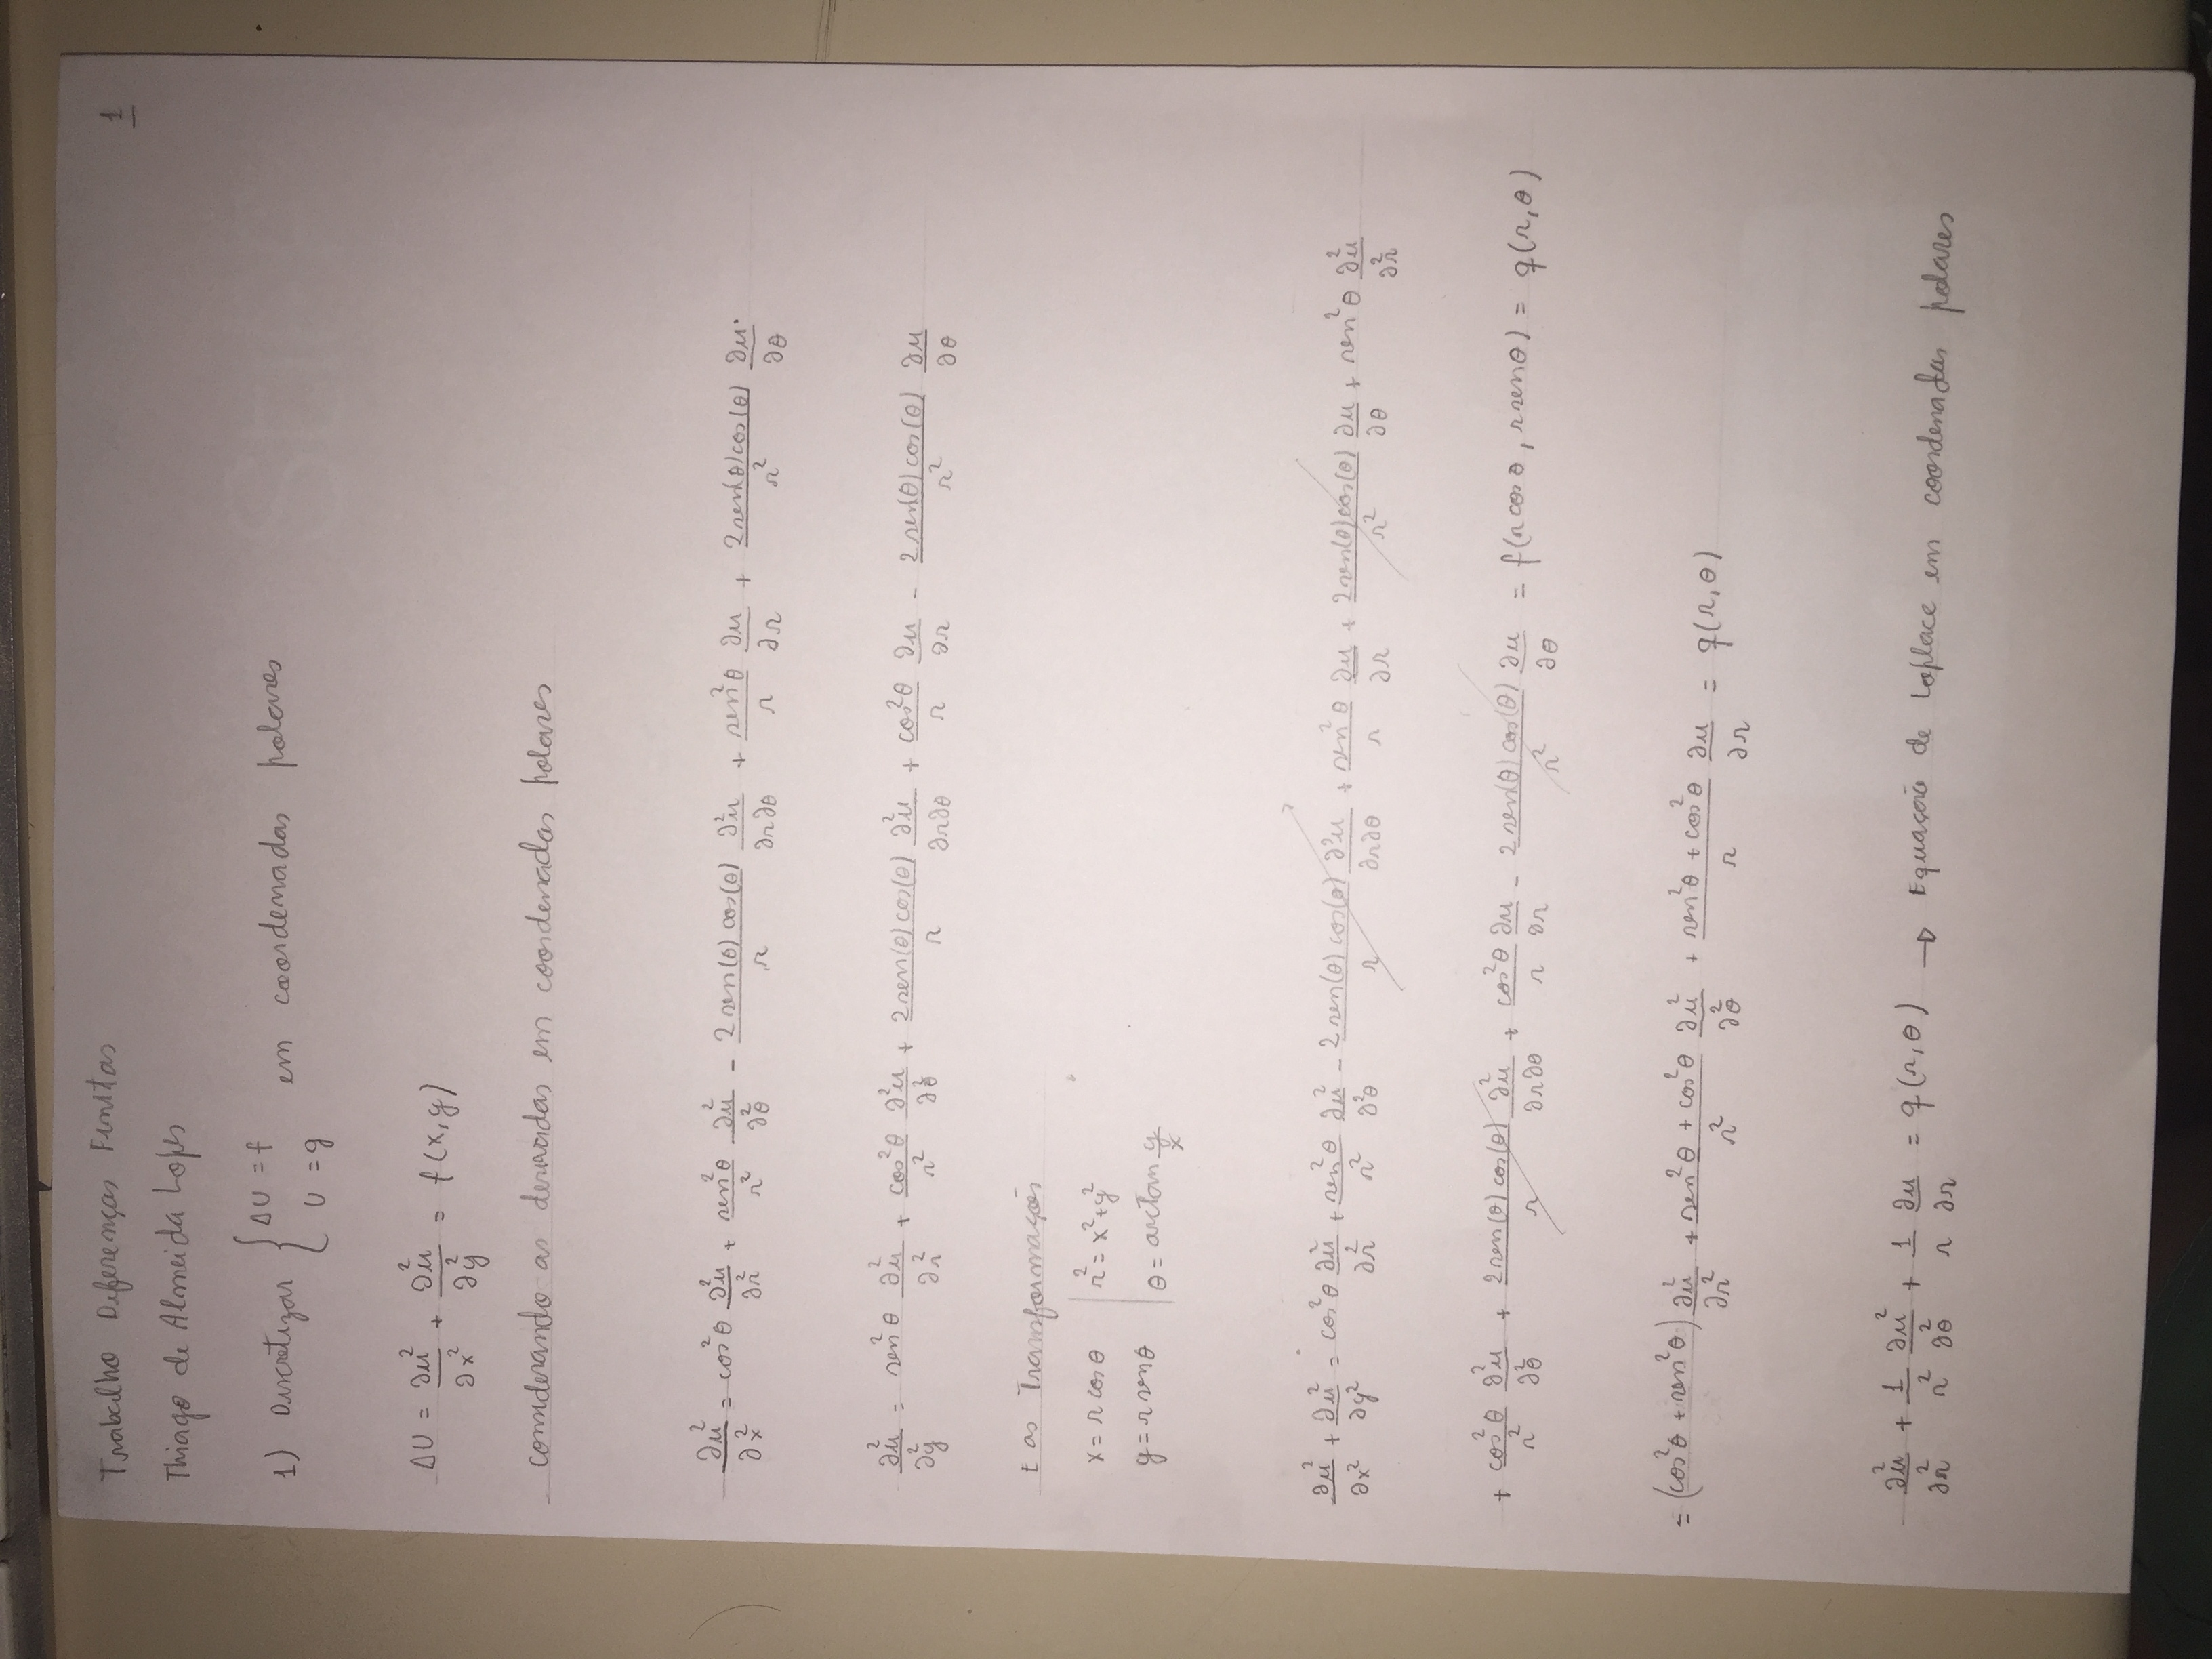 Trabalho Diferenças Finitas
1
Thiago de Almeida Lopes
1) Discretizar { ΔU = f em coordenadas polares
U = g
ΔU = ∂u²/∂x² + ∂²u/∂y² = f(x,y)
considerando as derivadas em coordenadas polares
∂u²/∂x² = cos²θ ∂²u/∂r² + sen²θ/r² ∂²u/∂θ² - 2sen(θ)cos(θ)/r ∂²u/∂r∂θ + sen²θ/r ∂u/∂r + 2sen(θ)cos(θ)/r² ∂u/∂θ
∂²u/∂y² = sen²θ ∂²u/∂r² + cos²θ/r² ∂²u/∂θ² + 2sen(θ)cos(θ)/r ∂²u/∂r∂θ + cos²θ/r ∂u/∂r - 2sen(θ)cos(θ)/r² ∂u/∂θ
E as Transformações
x = r cosθ | r² = x²+y²
y = r senθ | θ = arctan y/x
∂u²/∂x² + ∂u²/∂y² = cos²θ ∂²u/∂r² + sen²θ/r² ∂u²/∂²θ - 2sen(θ)cos(θ)/r ∂²u/∂r∂θ + sen²θ/r ∂u/∂r + 2sen(θ)cos(θ)/r² ∂u/∂θ + sen²θ ∂²u/∂²r
+ cos²θ/r² ∂²u/∂θ² + 2sen(θ)cos(θ)/r ∂²u/∂r∂θ + cos²θ/r ∂u/∂r - 2sen(θ)cos(θ)/r² ∂u/∂θ = f(rcosθ, rsenθ) = q(r,θ)
= (cos²θ + sen²θ) ∂²u/∂r² + sen²θ + cos²θ/r² ∂²u/∂θ² + sen²θ + cos²θ/r ∂u/∂r = q(r,θ)
∂²u/∂r² + 1/r² ∂u²/∂θ² + 1/r ∂u/∂r = q(r,θ) → Equação de Laplace em coordenadas polares